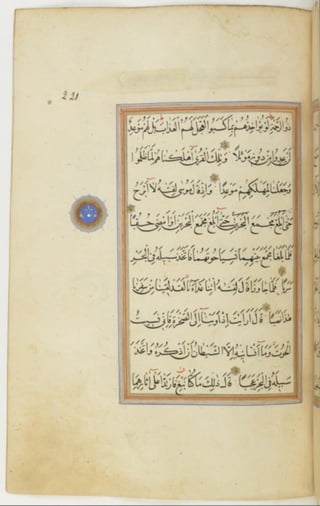 221
ذُو الرَّحْمَةِ لَوْ يُؤَاخِذُهُمْ بِمَا كَسَبُوا لَعَجَّلَ لَهُمُ الْعَذَابَ بَلْ لَهُمْ مَوْعِدٌ
لَنْ يَجِدُوا مِنْ دُونِهِ مَوْئِلًا وَتِلْكَ الْقُرَى أَهْلَكْنَاهُمْ لَمَّا ظَلَمُوا
وَجَعَلْنَا لِمَهْلِكِهِمْ مَوْعِدًا وَإِذْ قَالَ مُوسَى لِفَتٰيهُ لَا أَبْرَحُ
حَتَّى أَبْلُغَ مَجْمَعَ الْبَحْرَيْنِ حَتَّى أَبْلُغَ مَجْمَعَ الْبَحْرَيْنِ أَوْ أَمْضِيَ حُقُبًا
فَلَمَّا بَلَغَا مَجْمَعَ بَيْنِهِمَا نَسِيَا حُوتَهُمَا فَاتَّخَذَ سَبِيلَهُ فِي الْبَحْرِ
سَرَبًا فَلَمَّا جَاوَزَا قَالَ لِفَتٰيهُ آتِنَا غَدَاءَنَا لَقَدْ لَقِينَا مِنْ سَفَرِنَا
هَذَا نَصَبًا قَالَ أَرَأَيْتَ إِذْ أَوَيْنَا إِلَى الصَّخْرَةِ فَإِنِّي نَسِيتُ
الْحُوتَ وَمَا أَنْسَانِيهُ إِلَّا الشَّيْطَانُ أَنْ أَذْكُرَهُ وَاتَّخَذَ
سَبِيلَهُ فِي الْبَحْرِ عَجَبًا قَالَ ذَلِكَ مَا كُنَّا نَبْغِ فَارْتَدَّا عَلَى آثَارِهِمَا